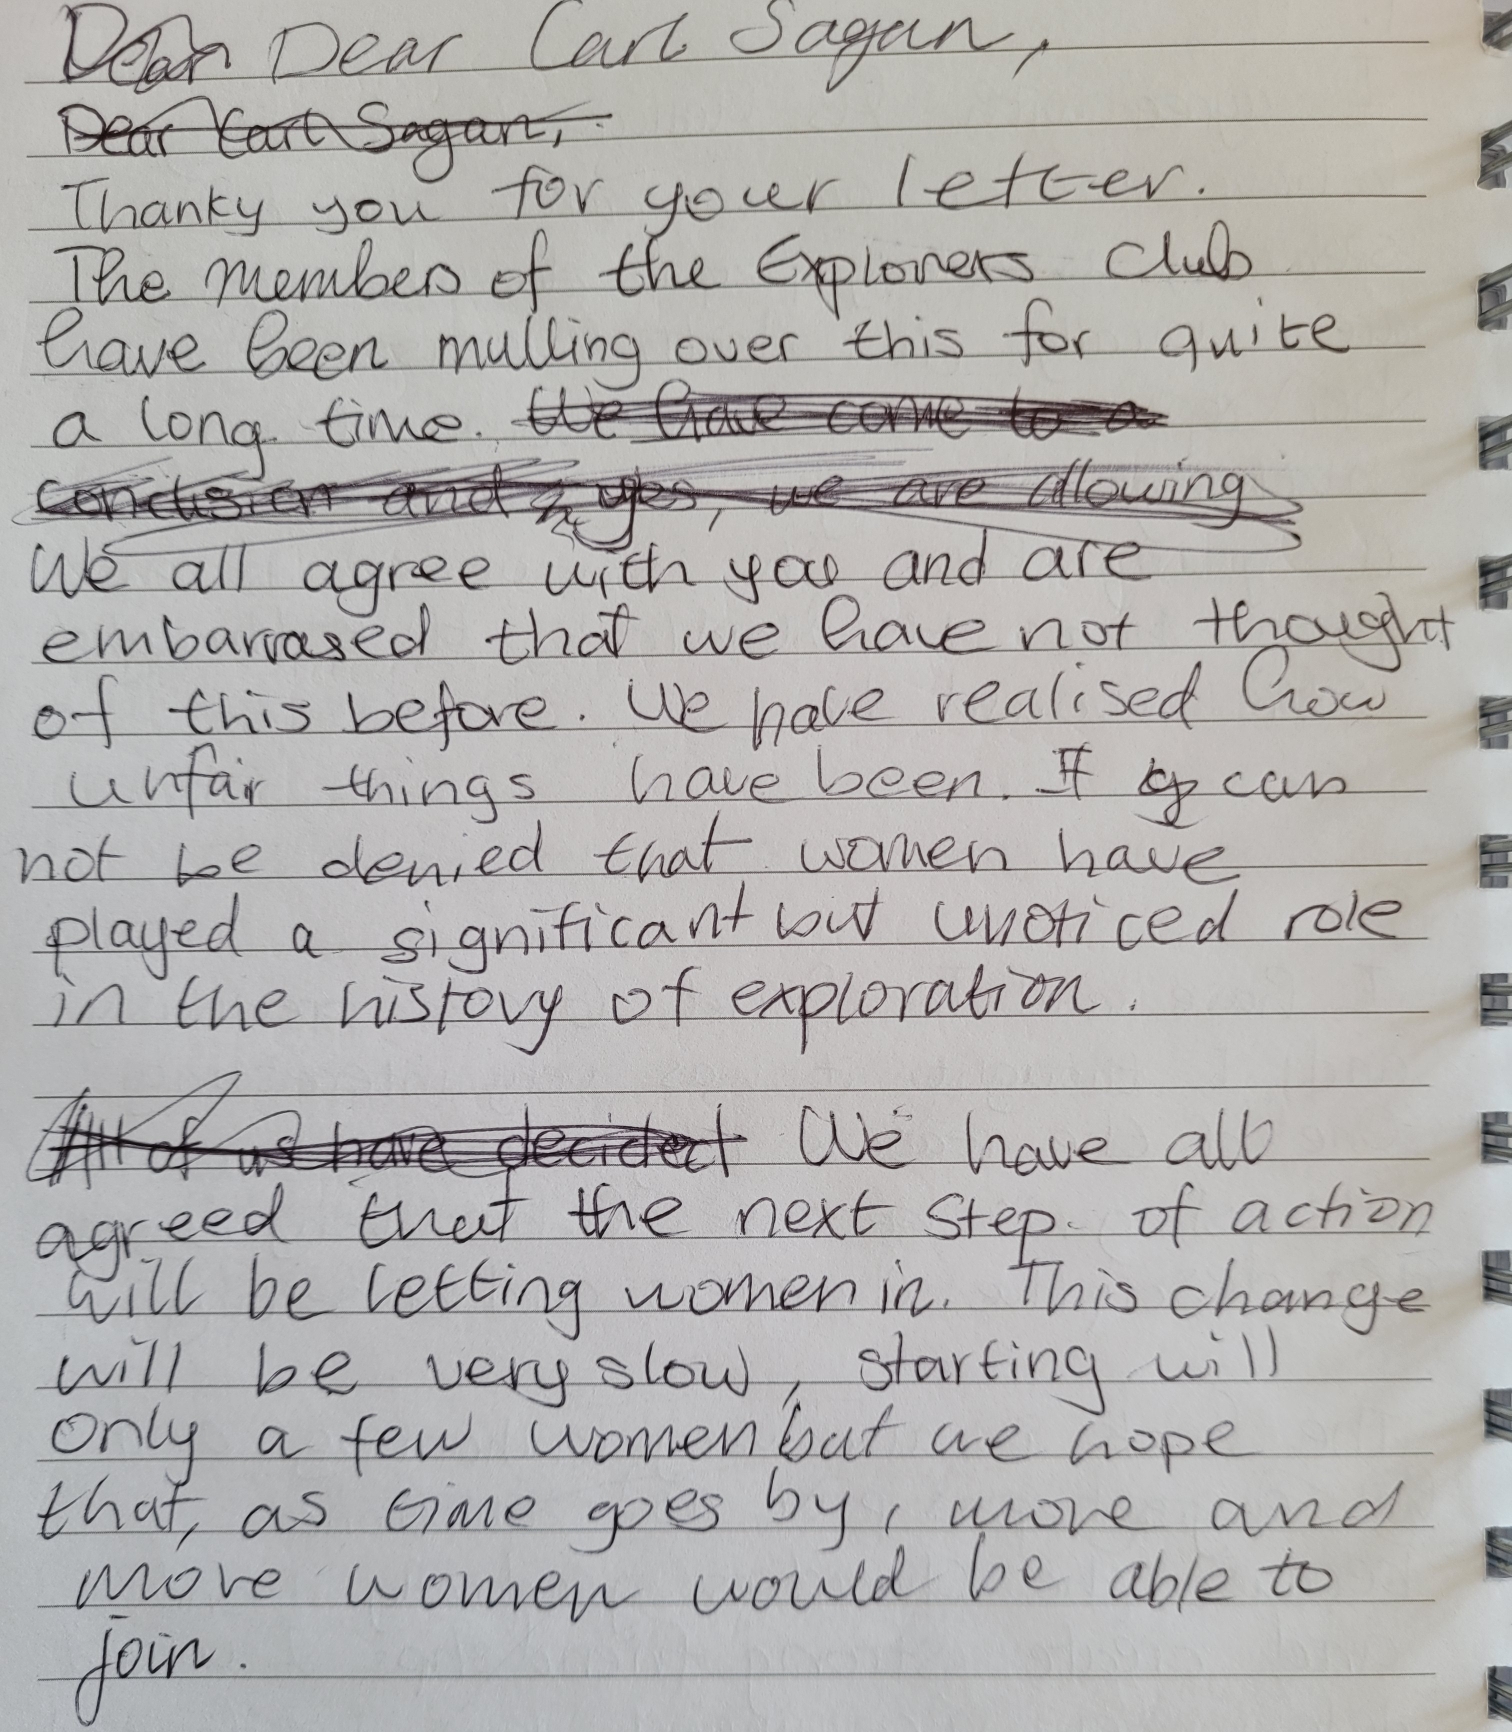 Dear Dear Carl Sagan,
Dear Carl Sagan,
Thanky you for your letter.
The members of the Explorers Club
have been mulling over this for quite
a long time. We have come to a
conclusion and yes, we are allowing
We all agree with you and are
embarrased that we have not thought
of this before. We have realised how
unfair things have been. It can
not be denied that women have
played a significant but unoticed role
in the history of exploration.
All of us have decided We have all
agreed that the next step. of action
will be letting women in. This change
will be very slow, starting will
only a few women but we hope
that, as time goes by, more and
more women would be able to
join.